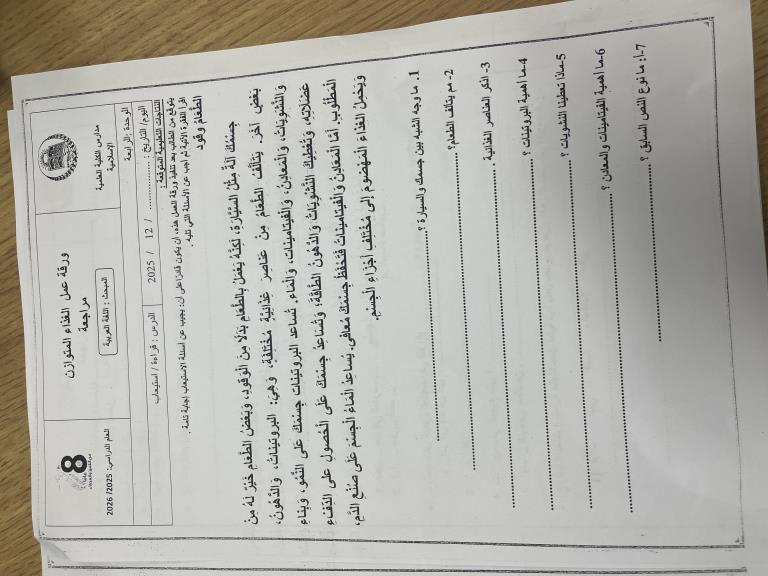 مدارس الكلية العلمية
الإسلامية
ورقة عمل الغذاء المتوازن
مراجعة
المبحث : اللغة العربية
8
العام الدراسي: 2025/ 2026
الوحدة :الرابعة
اليوم/ التاريخ : ............... / 12 / 2025
الدرس : قراءة / استيعاب
النتاجات التعليمية المتوقعة :
يتوقع من الطالب بعد تنفيذ ورقة العمل هذه، أن يكون قادرًا على أن: يجيب عن أسئلة الاستيعاب إجابة تامة .
اقرأ الفقرة الآتية ثم أجب عن الأسئلة التي تليه .
الطَّعامُ وَقود
جِسْمُكَ آلَةٌ مِثْلُ السَّيّارَةِ، لكِنَّهُ يَعْمَلُ بِالطَّعامِ بَدَلًا مِنَ الْوَقودِ، وَبَعْضُ الطَّعامِ خَيْرٌ لَهُ مِنْ
بَعْضٍ آخَرَ. يَتَأَلَّفُ الطَّعامُ مِنْ عَناصِرَ غِذائِيَّةٍ مُخْتَلِفَةٍ، وَهِيَ: البروتيناتُ، وَالدُّهونُ،
وَالنَّشَوِيّاتُ، وَالْمَعادِنُ، وَالْفيتاميناتُ، وَالْماءُ. تُساعِدُ البروتيناتُ جِسْمَكَ عَلى النُّمُوِّ، وَبِناءِ
عَضَلاتِهِ، وَتُعْطيكَ النَّشَوِيّاتُ وَالدُّهونُ الطّاقَةَ، وَتُساعِدُ جِسْمَكَ عَلى الْحُصولِ عَلى الدِّفْءِ
الْمَطْلوبِ. أَمّا الْمَعادِنُ وَالْفيتاميناتُ فَتَحْفَظُ جِسْمَكَ مُعافًى. يُساعِدُ الْماءُ الْجِسْمَ عَلى صُنْعِ الدَّمِ،
وَيَحْمِلُ الْغِذاءَ الْمَهْضومَ إِلى مُخْتَلِفِ أَجْزاءِ الْجِسْمِ.
1. ما وجه الشبه بين جسمك والسيارة ؟
2- مم يتألف الطعام؟
3- اذكر العناصر الغذائية .
4-ما أهمية البروتينات ؟
5-ماذا تعطينا النشويات ؟
6-ما أهمية الفيتامينات والمعادن ؟
7-أ: ما نوع النص السابق ؟